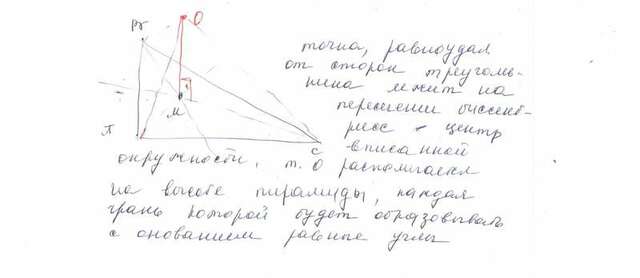 О
В
точка, равноудал
от сторон треуголь-
ника лежит на
пересечении биссект-
рисс - центр
М
А
С
вписанной
окружности, т. О располагаетя
на высове пирамиды, каждая
грань которой будет образовывать
с онованием равные углы